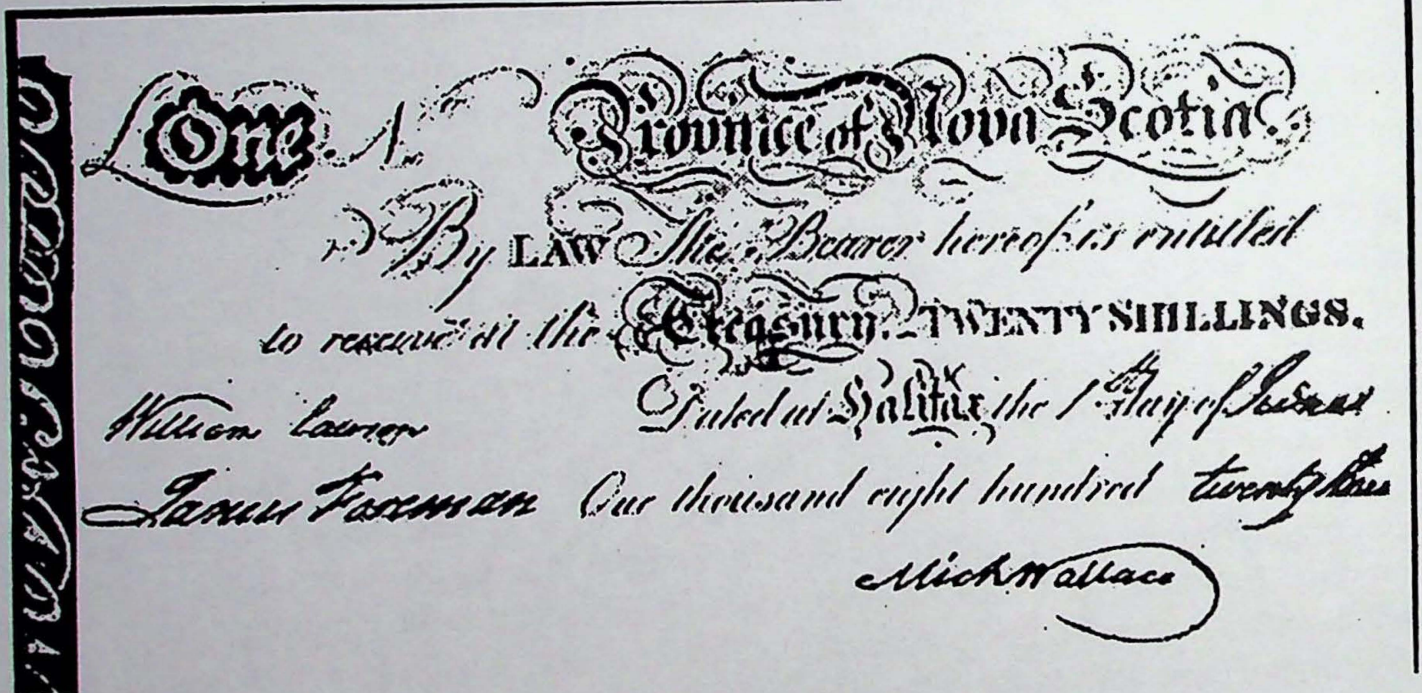 £ One N. Province of Nova Scotia.
By LAW The Bearer hereof is entitled
to receive at the Treasury. TWENTY SHILLINGS.
William Lawson Dated at Halifax the 1 Day of
James Foreman One thousand eight hundred twenty
Mich Wallace